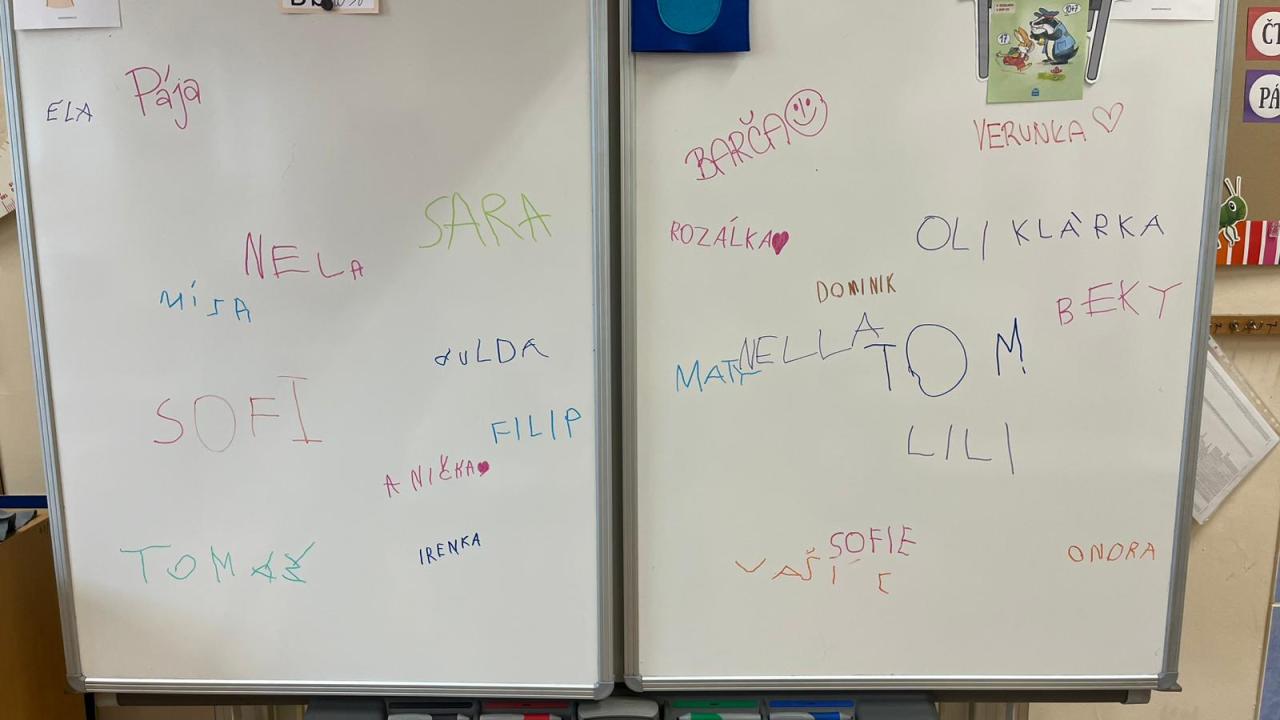 ELA
Pája
SARA
NELA
MÍSA
JULDA
SOFI
FILIP
ANIČKA
TOMÁŠ
IRENKA
BARČA
VERUNKA
ROZÁLKA
OLI KLÀRKA
DOMINIK
BEKY
NELLA
TOM
MATY
LILI
SOFIE
VAŠÍ
ONDRA
17
10+7
ČT
PÁ